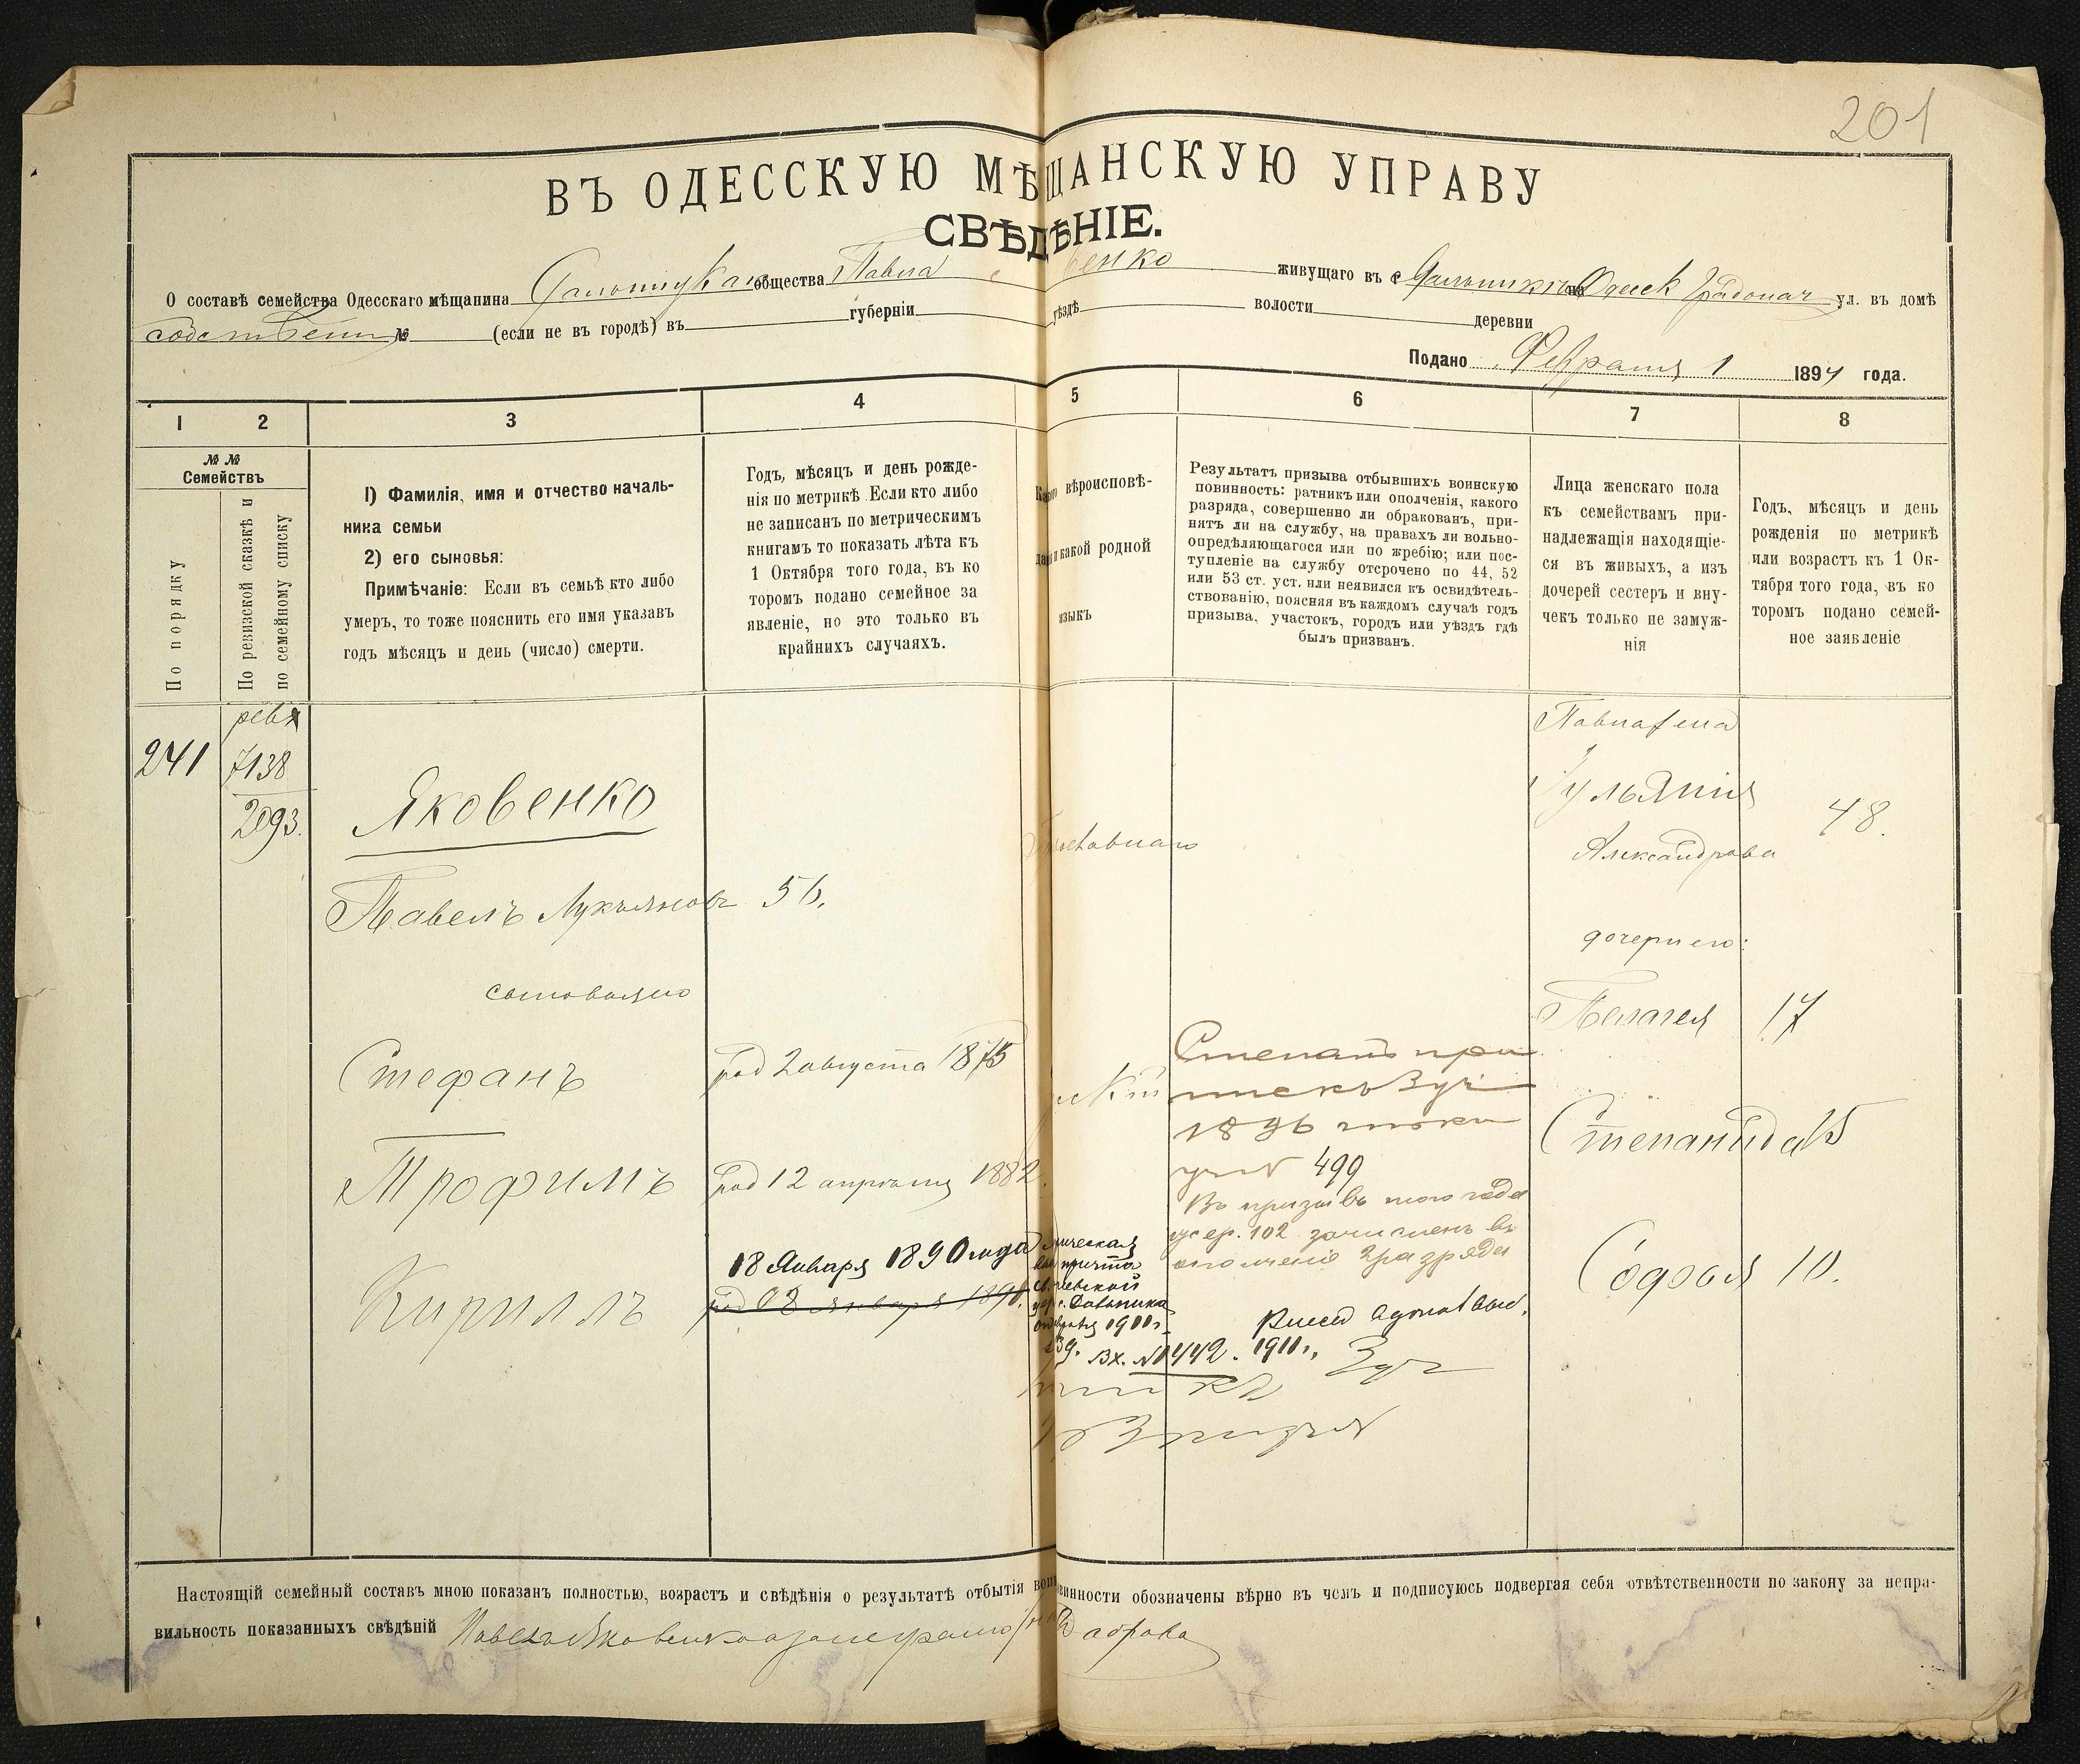 201
ВЪ ОДЕССКУЮ МѢЩАНСКУЮ УПРАВУ
СВѢДѢНІЕ.
О составѣ семейства Одесскаго мѣщанина общества Павла енко живущаго въ с Одесск Градонач ул. въ домѣ
собствен № (если не въ городѣ) въ губерніи уѣздѣ волости деревни
Подано Февраля 1 1897 года.
1 2 3 4 5 6 7 8
№ № Семействъ
По порядку
По ревизской сказкѣ и по семейному списку
1) Фамилія, имя и отчество началь-
ника семьи
2) его сыновья:
Примѣчаніе: Если въ семьѣ кто либо
умеръ, то тоже пояснить его имя указавъ
годъ мѣсяцъ и день (число) смерти.
Годъ, мѣсяцъ и день рожде-
нія по метрикѣ Если кто либо
не записанъ по метрическимъ
книгамъ то показать лѣта къ
1 Октября того года, въ ко
торомъ подано семейное за
явленіе, но это только въ
крайнихъ случаяхъ.
вѣроисповѣ-
какой родной
языкъ
Результатъ призыва отбывшихъ воинскую
повинность: ратникъ или ополченія, какого
разряда, совершенно ли обракованъ, при-
нятъ ли на службу, на правахъ ли вольно-
опредѣляющагося или по жребію; или пос-
тупленіе на службу отсрочено по 44, 52
или 53 ст. уст. или неявился къ освидѣтель-
ствованію, поясняя въ каждомъ случаѣ годъ
призыва, участокъ, городъ или уѣздъ гдѣ
былъ призванъ.
Лица женскаго пола
къ семействамъ при-
надлежащія находящіе-
ся въ живыхъ, а изъ
дочерей сестеръ и вну-
чекъ только не замуж-
нія
Годъ, мѣсяцъ и день
рожденія по метрикѣ
или возрастъ къ 1 Ок-
тября того года, въ ко
торомъ подано семей-
ное заявленіе
241
7138
2093.
Яковенко
Павелъ Лукьяновъ 56.
Павла жена
Ульянія
Александрова
48.
дочери его:
Пелагея 17
Степанида 15
Софья 10.
сыновья его
Стефанъ
род 2 августа 1875
Трофимъ
род 12 апрѣля 1882.
Кириллъ
18 Января 1890 года
род 18 января 1891.
Степанъ при
1896
499
Въ призывъ того года
102 зачисленъ въ
ополченіе 2 разряда
1911 г.
Вх. № 442. 1911 г.
Настоящій семейный составъ мною показанъ полностью, возрастъ и свѣдѣнія о результатѣ отбытія воинской повинности обозначены вѣрно въ чемъ и подписуюсь подвергая себя отвѣтственности по закону за непра-
вильность показанныхъ свѣдѣній Павелъ Яковенко